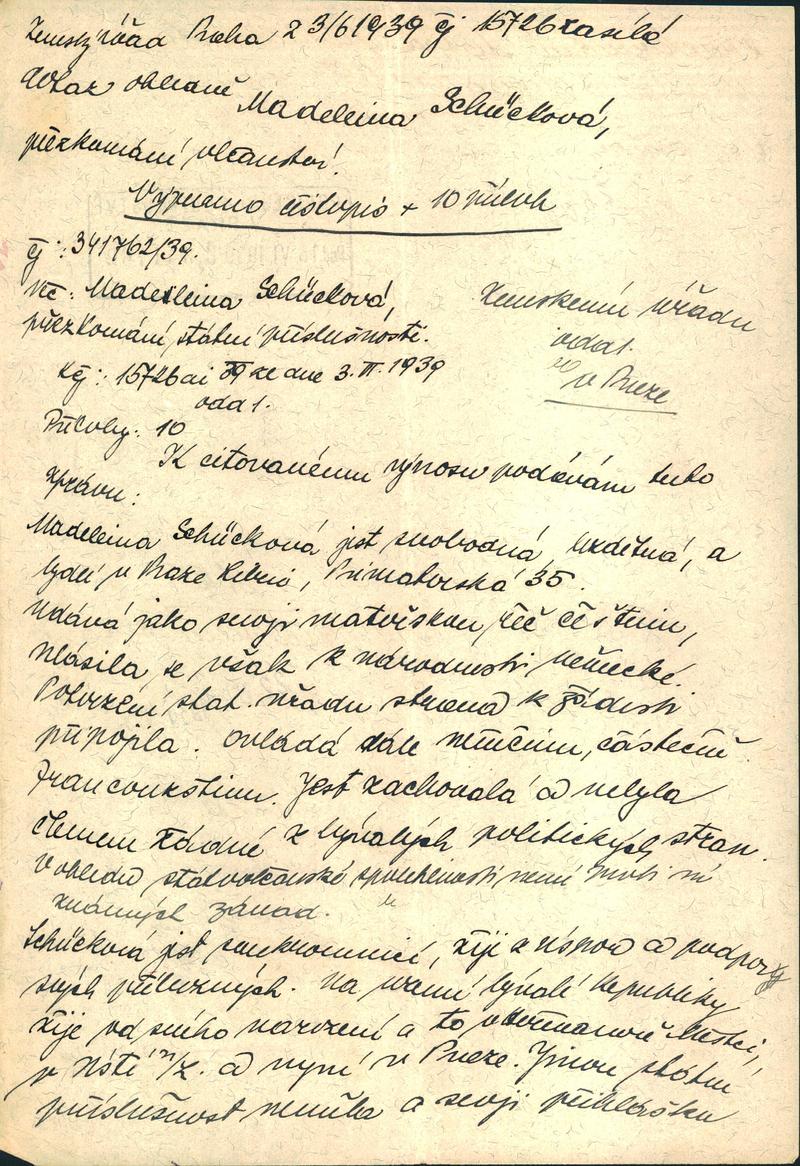 Zemský úřad Praha z 3/6 1939 čj 15726 zasílá
dotaz ohledně Madeleina Schücková,
přezkoumání občanství.
Vyjmuto čistopis + 10 příloh
čj: 341762/39.
Věc: Madeleina Schückova,
přezkoumání státní příslušnosti.
Zemskému úřadu
odd 1.
v Praze
K čj: 15726 ai 39 ze dne 3. III. 1939
odd 1.
Přílohy: 10
K citovanému výnosu podávám tuto
zprávu:
Madeleina Schücková jest svobodná, bezdětná, a
bydlí v Praze Libni, Primatorská 35.
Udává jako svoji mateřskou řeč češtinu,
hlásila se však k národnosti německé.
Potvrzení stat. úřadu strana k žádosti
připojila. Ovládá dále němčinu, částečně
francouzštinu. Jest zachovalá a nebyla
členem žádné z bývalých politických stran.
V ohledu státoobčanské spolehlivosti není proti ní
známých závad.
Schücková jest soukromnicí, žije z úspor a podpory
svých příbuzných. Na území bývalé republiky
žije od svého narození a to v Heřmanově Městci,
v Ústí n/L. a nyní v Praze. Jinou státní
příslušnost neměla a svoji přihlášku